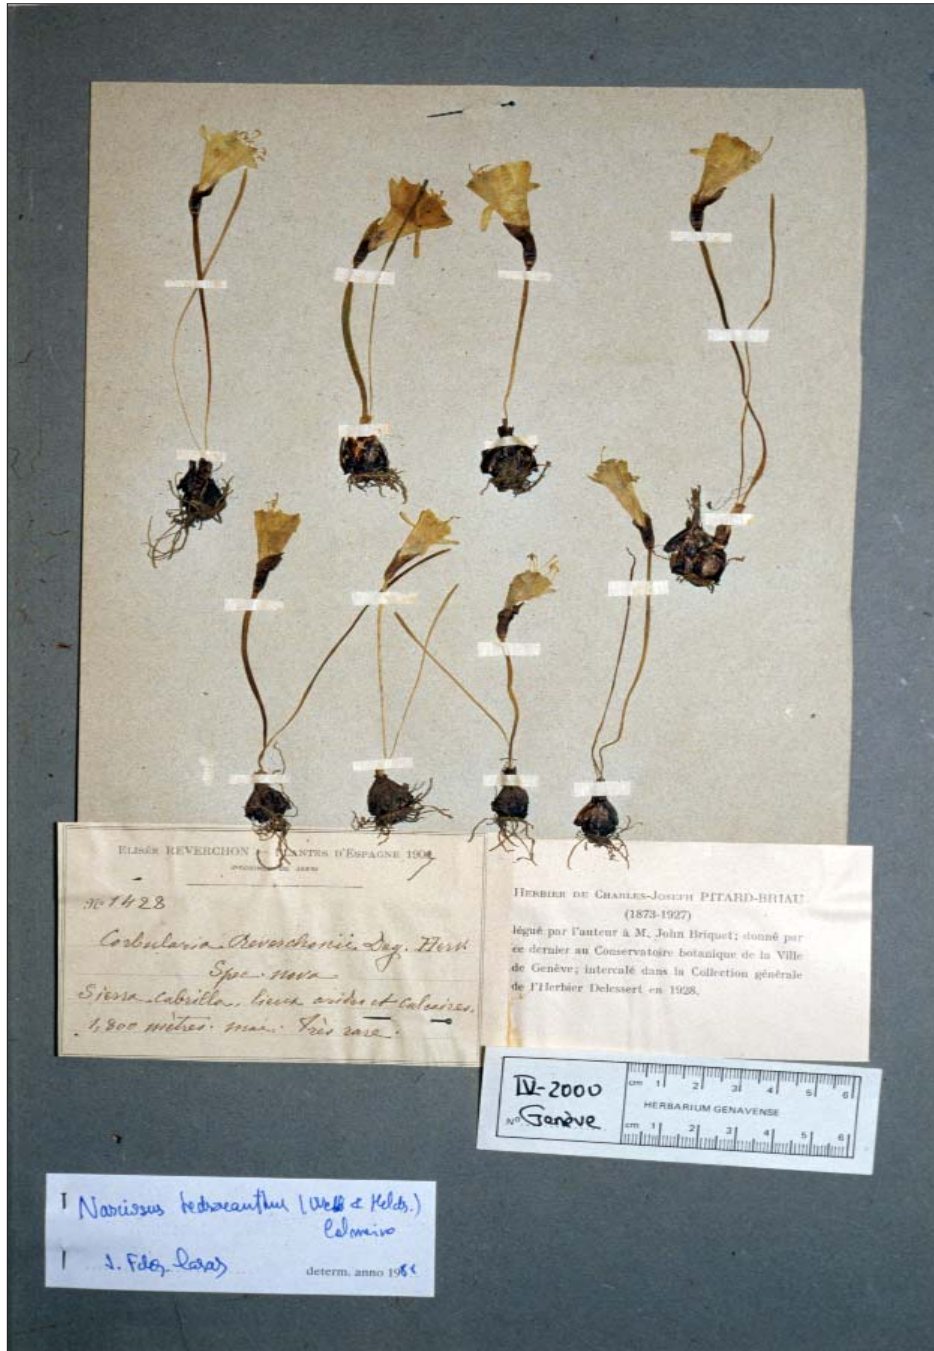 ELISÉE REVERCHON — PLANTES D'ESPAGNE 190
No 1428
Corbularia Reverchonii Deg. Herv.
Spe. nova
Sierra Cabrilla, lieux arides et calcaires.
1,800 mètres. mai. Très rare.
HERBIER DE CHARLES-JOSEPH PITARD-BRIAU
(1873-1927)
légué par l'auteur à M. John Briquet; donné par
ce dernier au Conservatoire botanique de la Ville
de Genève; intercalé dans la Collection générale
de l'Herbier Delessert en 1928.
IV-2000
No Genève
cm 1 2 3 4 5 6
HERBARIUM GENAVENSE
cm 1 2 3 4 5 6
Narcissus hedraeanthus (Webb & Heldr.)
Colmeiro
J. Fdez. Casas
determ. anno 198